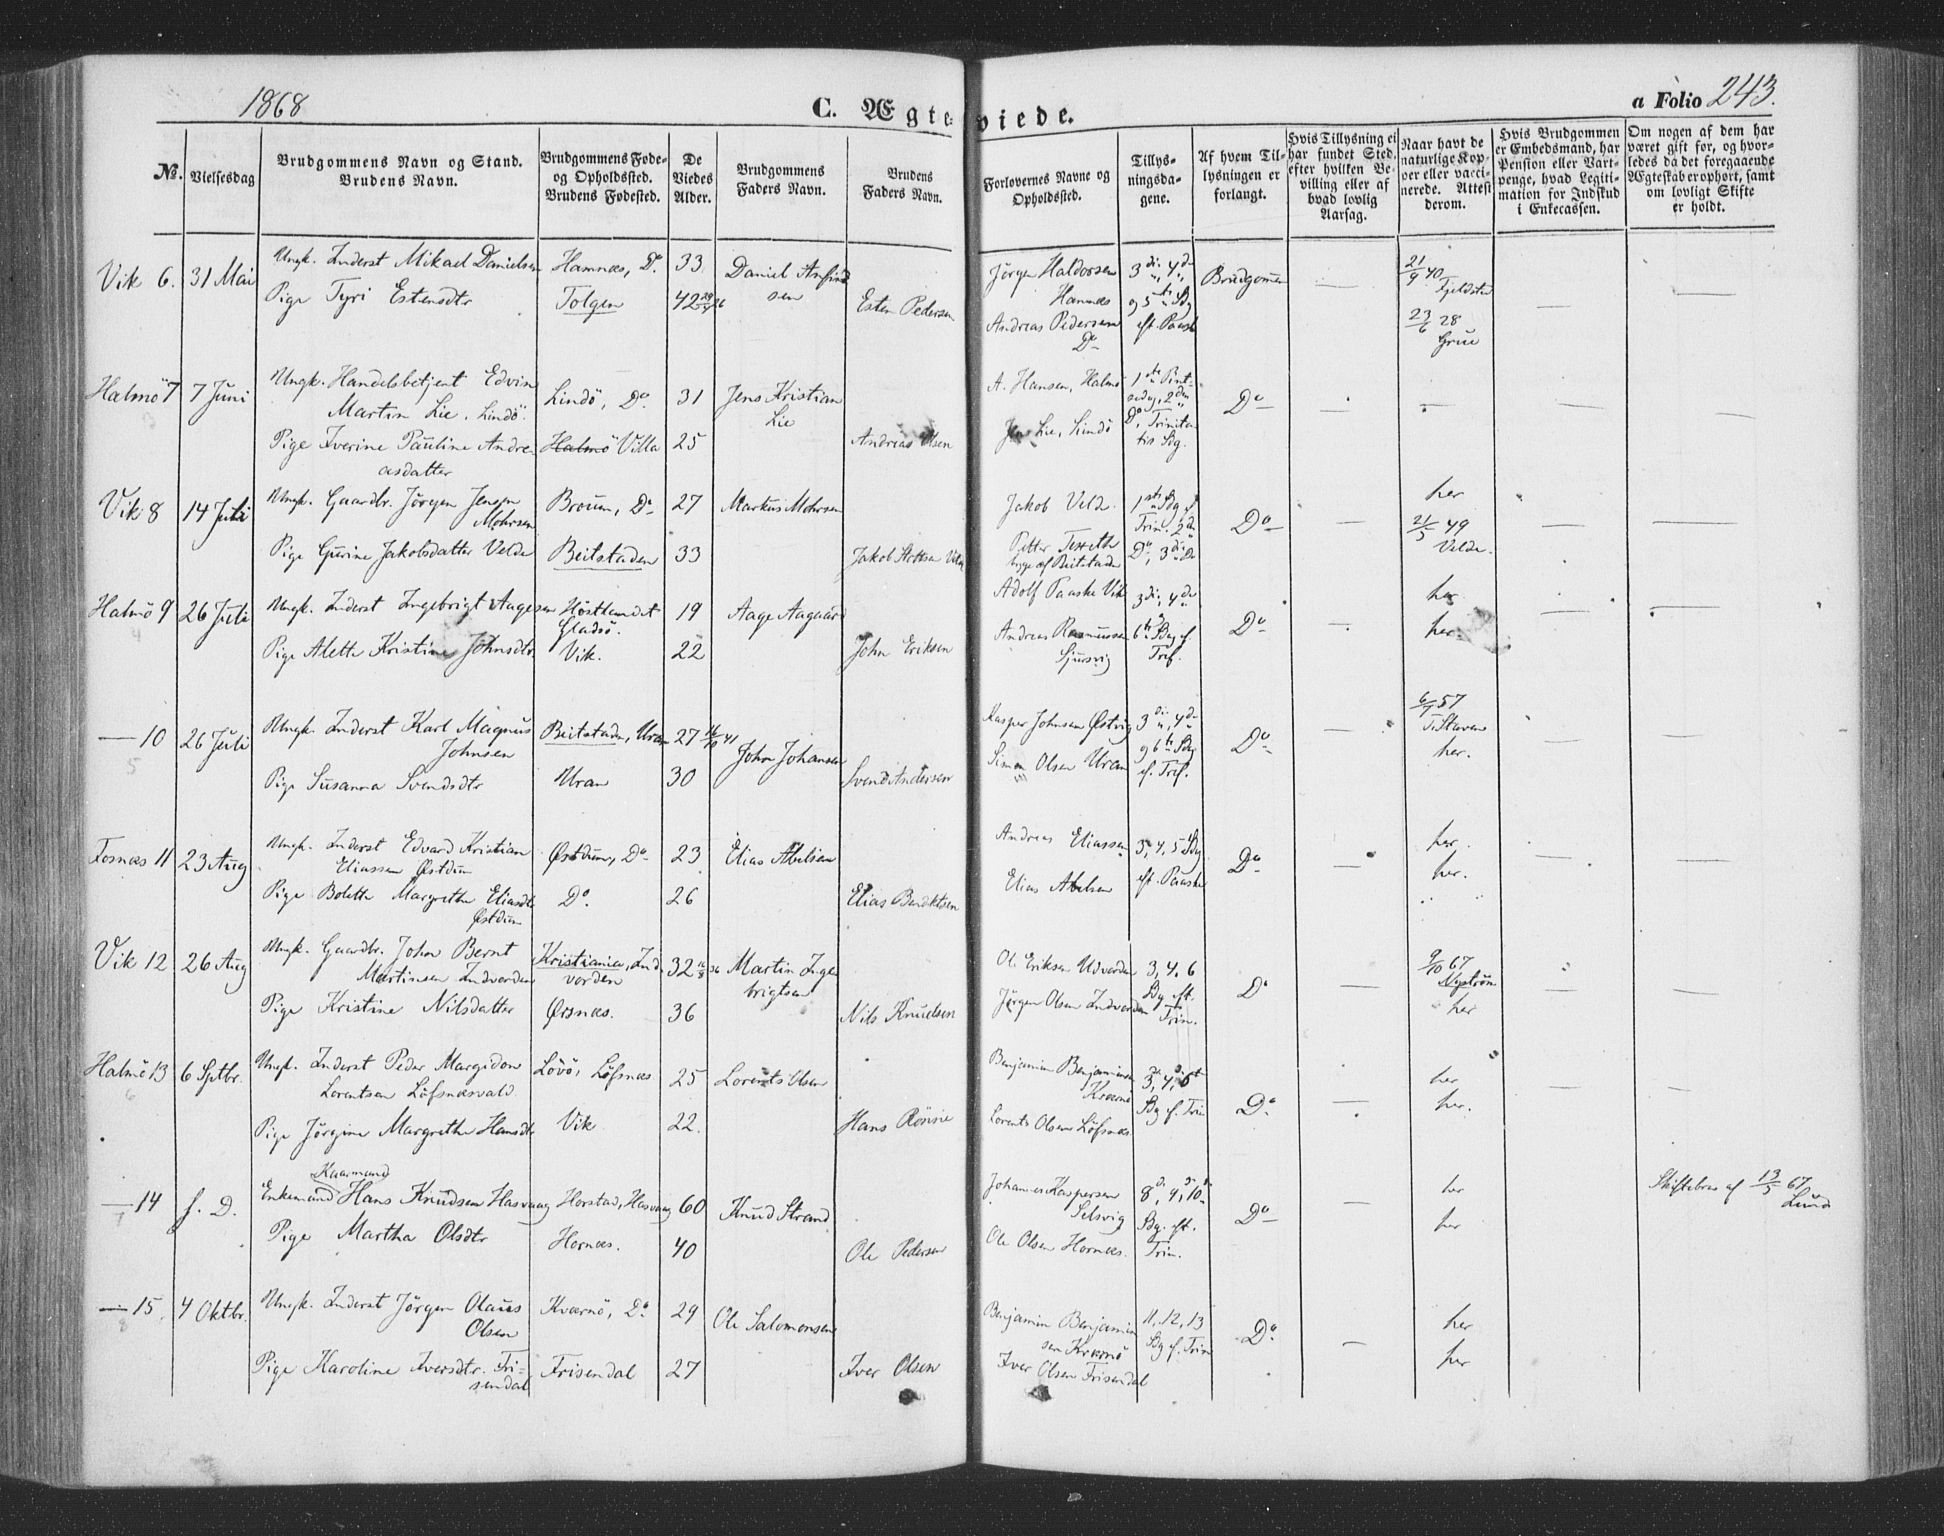 1868
C. Ægteviede.
a Folio 243.
№.
Vielsesdag
Brudgommens Navn og Stand.
Brudens Navn.
Brudgommens Føde-
og Opholdssted.
Brudens Fødested.
De
Viedes
Alder.
Brudgommens
Faders Navn.
Brudens
Faders Navn.
Forlovernes Navne og
Opholdssted.
Tillys-
ningsda-
gene.
Af hvem Til-
lysningen er
forlangt.
Hvis Tillysning ei
har fundet Sted,
efter hvilken Be-
villing eller af
hvad lovlig
Aarsag.
Naar havt de
naturlige Kop-
per eller vacci-
nerede. Attest
derom.
Hvis Brudgommen
er Embedsmand, har
Pension eller Vart-
penge, hvad Legiti-
mation for Indskud
i Enkecassen.
Om nogen af dem har
været gift før, og hvor-
ledes da det foregaaende
Ægteskab er ophørt, samt
om lovligt Skifte
er holdt.
Vik 6. 31 Mai Ungk. Inderst Mikael Danielsen Hamnæs, Do. 33 Daniel Anfind
sen
Pige Tyri Estensdtr Tolgen 42 Esten Pedersen
Jörgen Haldorsen
Hamnæs
Andreas Pedersen
Do
3die, 4de
og 5te Sdg
eft. Paaske
Brudgommen
21/9 40
Fjeldstad
23/6 28
Grue
Halmö 7 7 Juni Ungk. Handelsbetjent Edvin
Martin Lie, Lindö. Lindö, Do. 31 Jens Kristian
Lie
Pige Iverine Pauline Andre
asdatter Halmö Villa 25 Andreas Olsen
A. Hansen, Halmö
Jens Lie, Lindö
1ste Pint-
sedag, 2den
Do, Trinita
tis Sdg.
Do
Vik 8 14 Juli Ungk. Gaardbr. Jörgen Jensen
Mohrsen Broum, Do 27 Markus Mohrsen
Pige Gurine Jakobsdatter Velde Beitstaden 33 Jakob Velde
Jakob Velde
Petter
begge af Beitstaden
1ste Sdg ef
Trin. 2den
Do, 3die Do
Do
her
21/5 49
Velde.
Halmö 9 26 Juli Ungk. Inderst Ingebrigt Aagesen Höstlandet
Gladsö. 19 Aage Aagaard
Pige Alette Kristine Johnsdtr. Vik. 22 John Eriksen
Adolf Paaske Vik
Andreas Rasmussen
Sjursvig
3die, 4de
6te Sdg ef
Tref.
Do
her
her.
— 10 26 Juli Ungk. Inderst Karl Magnus
Johnsen Beitstaden, Uran 27 John Johansen
Pige Susanna Svendsdtr Uran 30 Svend Andersen
Kasper Johnsen Østvig
Simon Olsen Uran
3die, 4de
og 6te Sdg
ef. Tref.
Do
her.
Fosnæs 11 23 Aug Ungk. Inderst Edvard Kristian
Eliassen Østdun Østdun, Do 23 Elias Abelsen
Pige Bolette Margrethe Eliasdtr
Østdun Do. 26 Elias Bendiktsen
Andreas Eliassen
Elias Abelsen
3, 4, 5 Sdg
eft. Paaske
Do
her.
her.
Vik 12 26 Aug Ungk. Gaardbr. John Bernt
Martinsen Indvorden Kristiania, Ind
vorden 32 Martin Inge
brigtsen
Pige Kristine Nilsdatter Ørsnæs. 36 Nils Knudsen
Ol. Eriksen Udvorden
Jörgen Olsen Indvorden
3, 4, 6
Sdg eft.
Trin.
Do
9/10 67
Nyström
her
Halmö 13 6 Sptbr. Ungk. Inderst Peder Margidon
Lorentsen Löfsnæsvald Lövö, Löfsnæs 25 Lorents Olsen
Pige Jörgine Margrethe Hansdtr Vik 22. Hans Rönne
Benjamin Benjaminsen
Kværnö
Lorents Olsen Löfsnæs
3, 4, 6
Sdg ef. Trin
Do.
her
her.
— 14 s. D. Kaarmand
Enkemand Hans Knudsen Hasvaag Horstad, Hasvaag 60 Knud Strand
Pige Martha Olsdtr Hornæs. 40 Ole Pedersen
Johannes Kaspersen
Selsvig
Ole Olsen Hornæs.
8, 9, 10
Sdg. eft.
Trin.
Do
her
her
Skiftebrev af 13/5 67
Lund
— 15. 4 Oktbr. Ungk. Inderst Jörgen Olaus
Olsen Kværnö, Do 29 Ole Salomonsen
Pige Karoline Iversdtr. Fri-
sendal Frisendal 27 Iver Olsen
Benjamin Benjamin
sen Kværnö
Iver Olsen Frisendal
11, 12, 13
Sdg ef. Trin
Do.
her
her